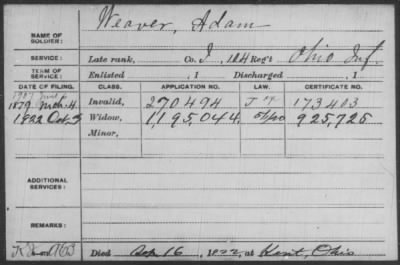 Weaver, Adam
NAME OF SOLDIER:
SERVICE: Late rank, Co. I, 104 Reg't Ohio Inf.
TERM OF SERVICE: Enlisted , 1 Discharged , 1
DATE OF FILING. CLASS. APPLICATION NO. LAW. CERTIFICATE NO.
1879 Mch. 4. Invalid, 270494 173403
1922 Oct. 3 Widow, 1,195,044 925,725
Minor,
ADDITIONAL SERVICES:
REMARKS:
Died Sep. 16, 1922, at Kent, Ohio